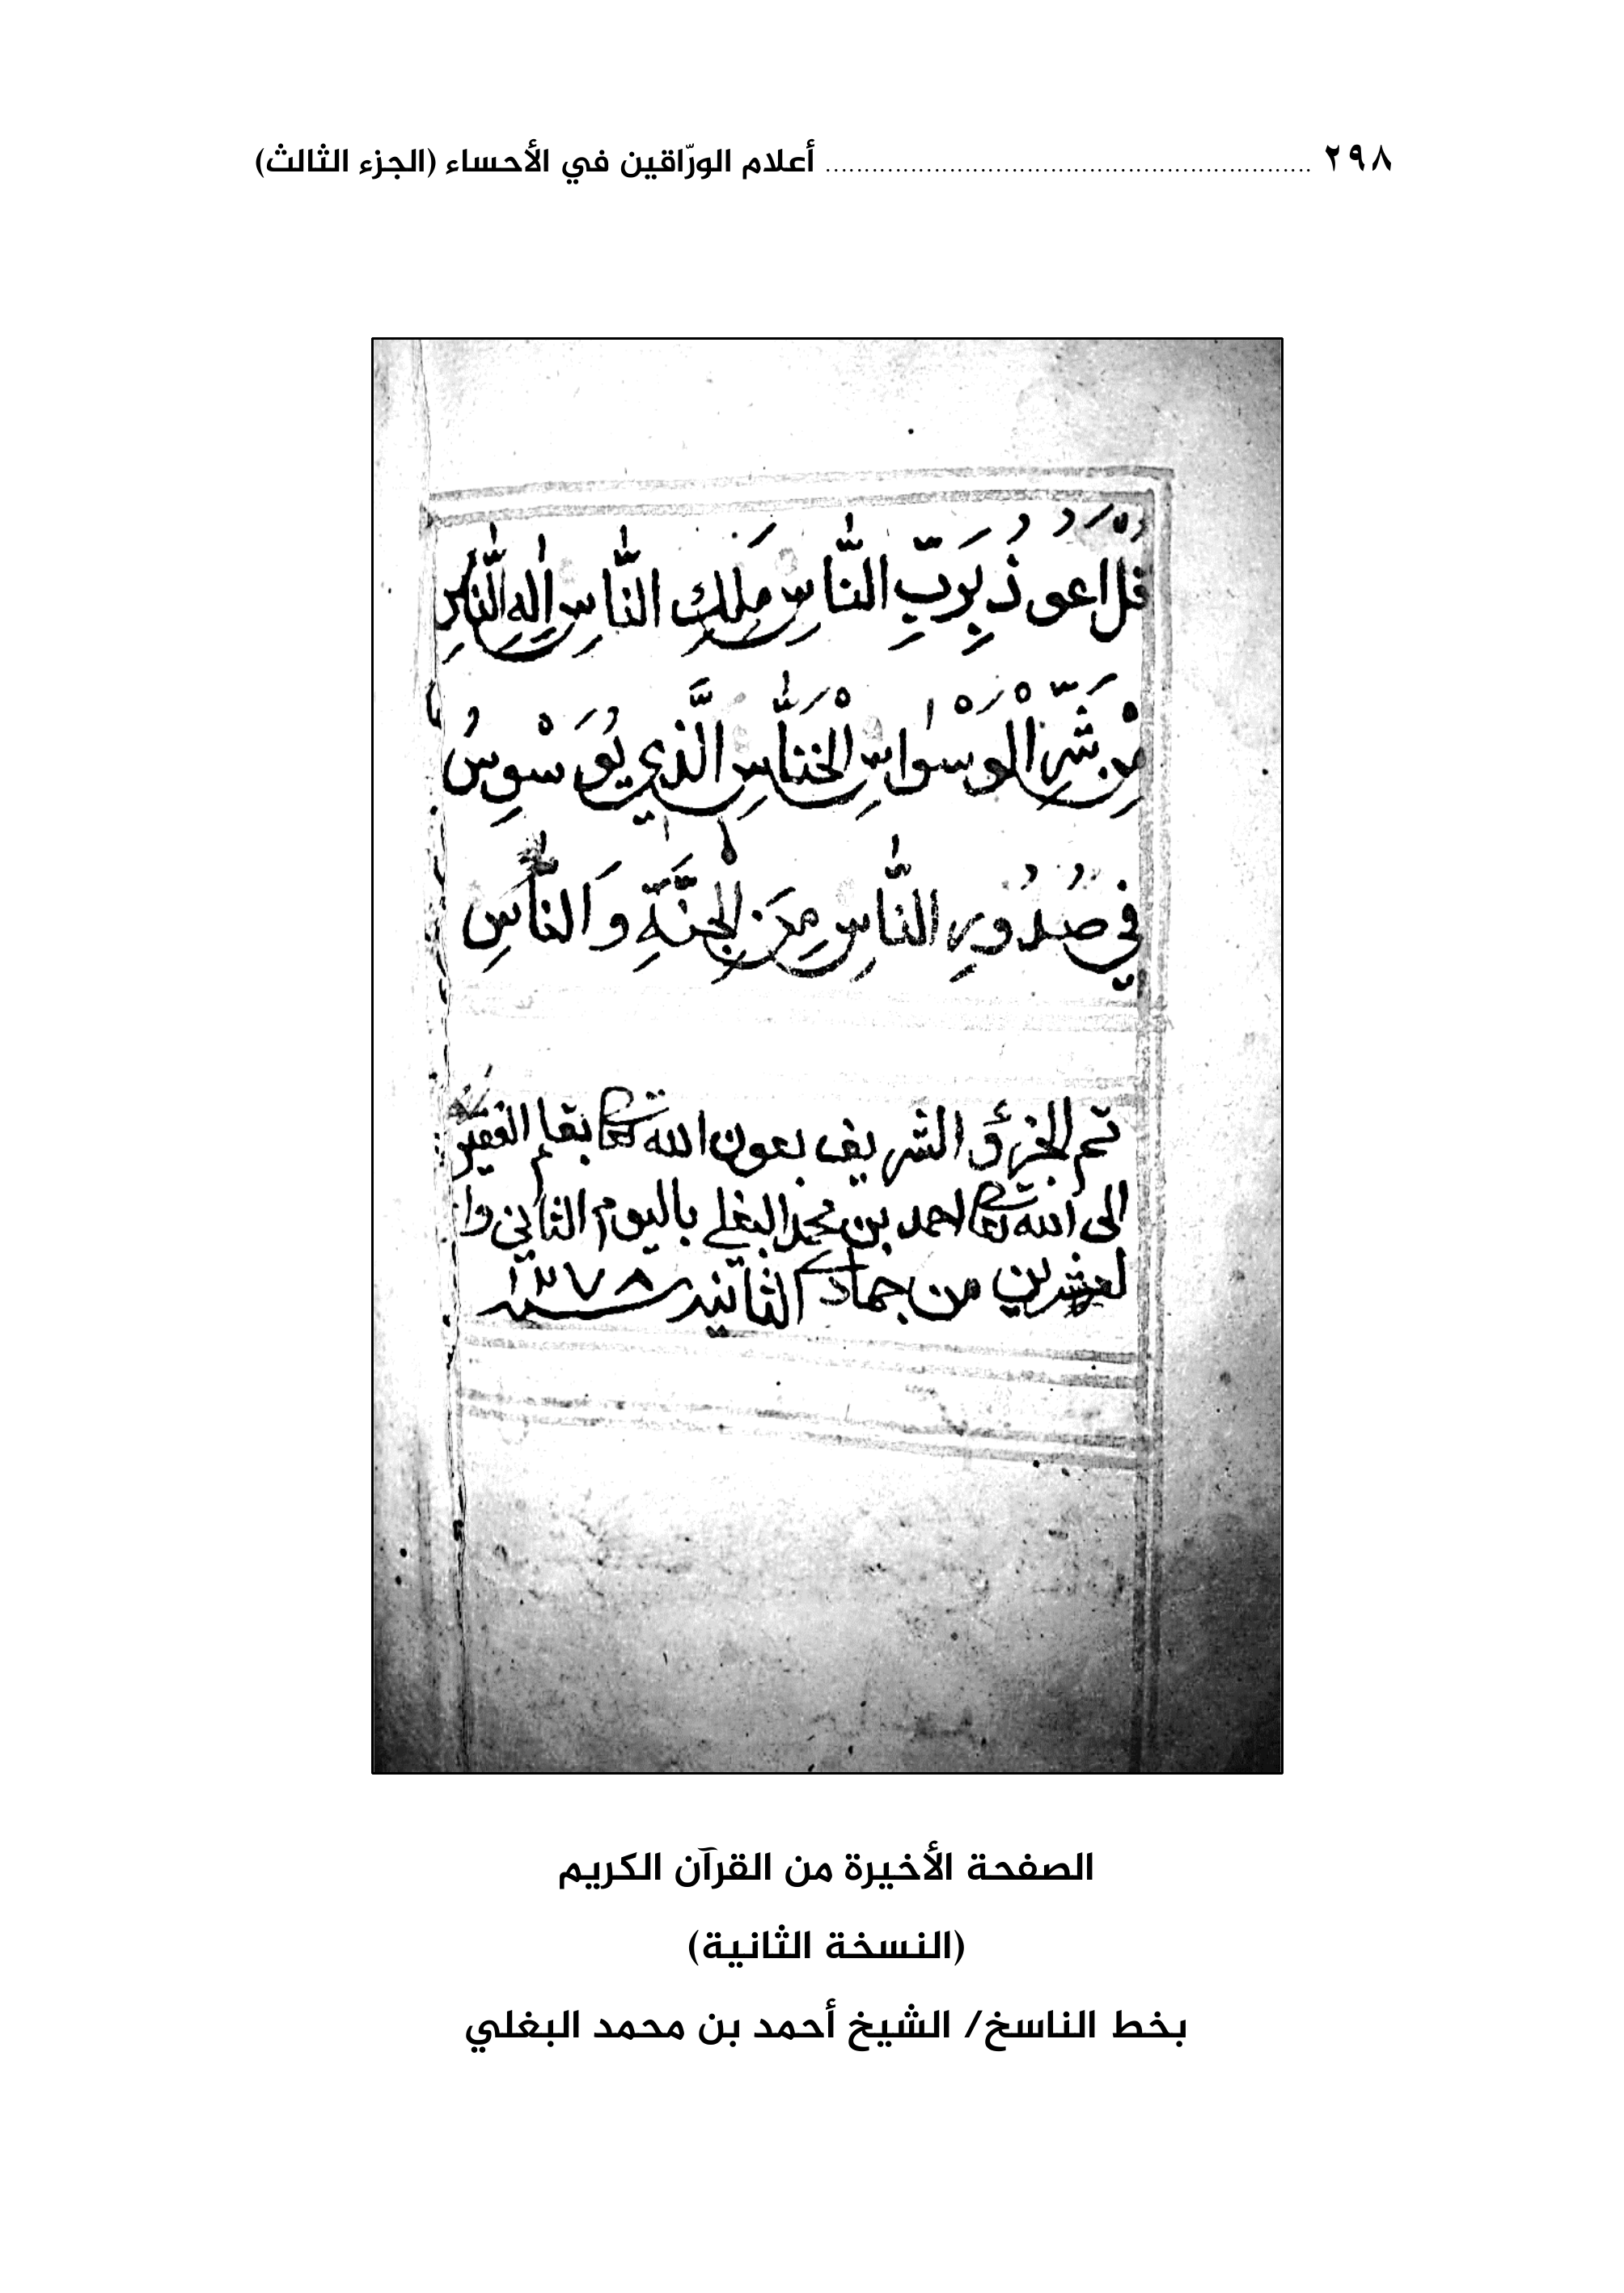 ٢٩٨ ................................................................ أعلام الورّاقين في الأحساء (الجزء الثالث)
قُلْ اعوذُ بِرَبِّ النَّاسِ مَلِكِ النَّاسِ اِلٰهِ النَّاسِ
مِنْ شَرِّ الْوَسْوَاسِ الْخَنَّاسِ الَّذي يُوَسْوِسُ
في صُدُورِ النَّاسِ مِنَ الْجِنَّةِ وَالنَّاسِ
تم الجزؤ الشريف بعون الله تعا بقلم الفقير
الى الله تعا احمد بن محمد البغلي باليوم الثاني وا
لعشرين من جمادى الثانيه سنة ١٣٧٨
الصفحة الأخيرة من القرآن الكريم
(النسخة الثانية)
بخط الناسخ/ الشيخ أحمد بن محمد البغلي